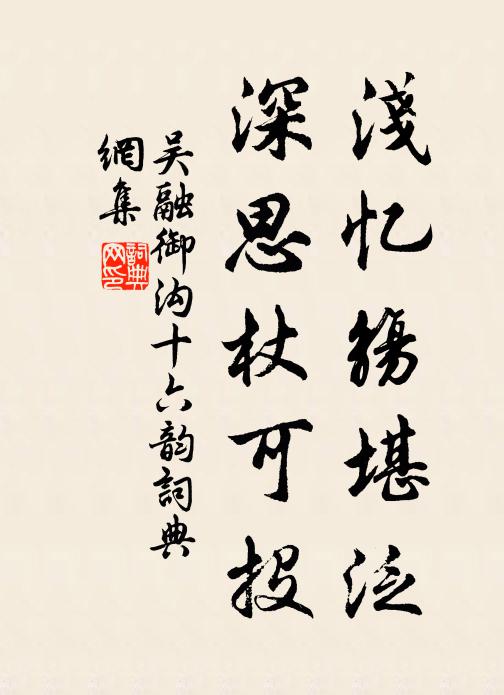 淺忆觞堪泛
深思杖可投
吴融御沟十六韵詞典
網集
詞典网印